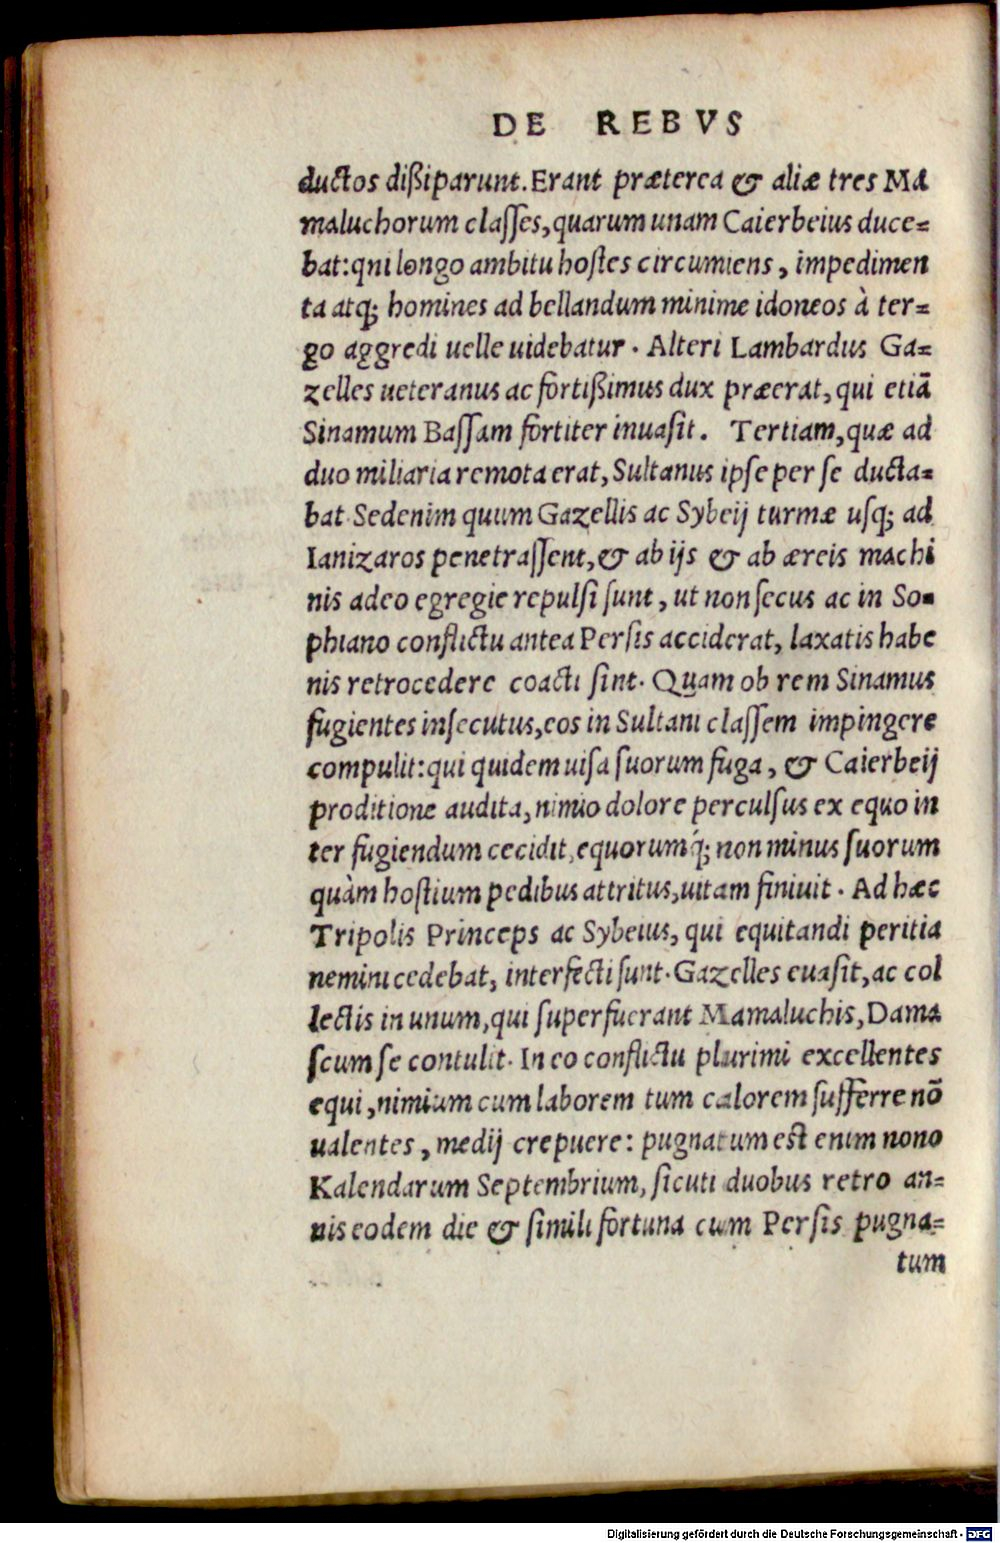 DE REBVS
ductos dißiparunt. Erant præterea & aliæ tres Ma
maluchorum classes, quarum unam Caierbeius duce=
bat: qni longo ambitu hostes circumiens, impedimen
ta atq; homines ad bellandum minime idoneos à ter=
go aggredi uelle uidebatur. Alteri Lambardus Ga=
zelles ueteranus ac fortißimus dux præerat, qui etiā
Sinamum Bassam fortiter inuasit. Tertiam, quæ ad
duo miliaria remota erat, Sultanus ipse per se ducta=
bat. Sedenim quum Gazellis ac Sybeij turmæ usq; ad
Ianizaros penetrassent, & ab ijs & ab æreis machi
nis adeo egregie repulsi sunt, ut non secus ac in So=
phiano conflictu antea Persis acciderat, laxatis habe
nis retrocedere coacti sint. Quam ob rem Sinamus
fugientes insecutus, eos in Sultani classem impingere
compulit: qui quidem uisa suorum fuga, & Caierbeij
proditione audita, nimio dolore perculsus ex equo in
ter fugiendum cecidit, equorumq́; non minus suorum
quàm hostium pedibus attritus, uitam finiuit. Ad hæc
Tripolis Princeps ac Sybeius, qui equitandi peritia
nemini cedebat, interfecti sunt. Gazelles euasit, ac col
lectis in unum, qui superfuerant Mamaluchis, Dama
scum se contulit. In eo conflictu plurimi excellentes
equi, nimium cum laborem tum calorem sufferre nō
ualentes, medij crepuere: pugnatum est enim nono
Kalendarum Septembrium, sicuti duobus retro an=
nis eodem die & simili fortuna cum Persis pugna=
tum
Digitalisierung gefördert durch die Deutsche Forschungsgemeinschaft - DFG